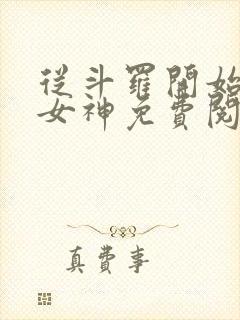 從斗羅開始
女神免費閱
真費事